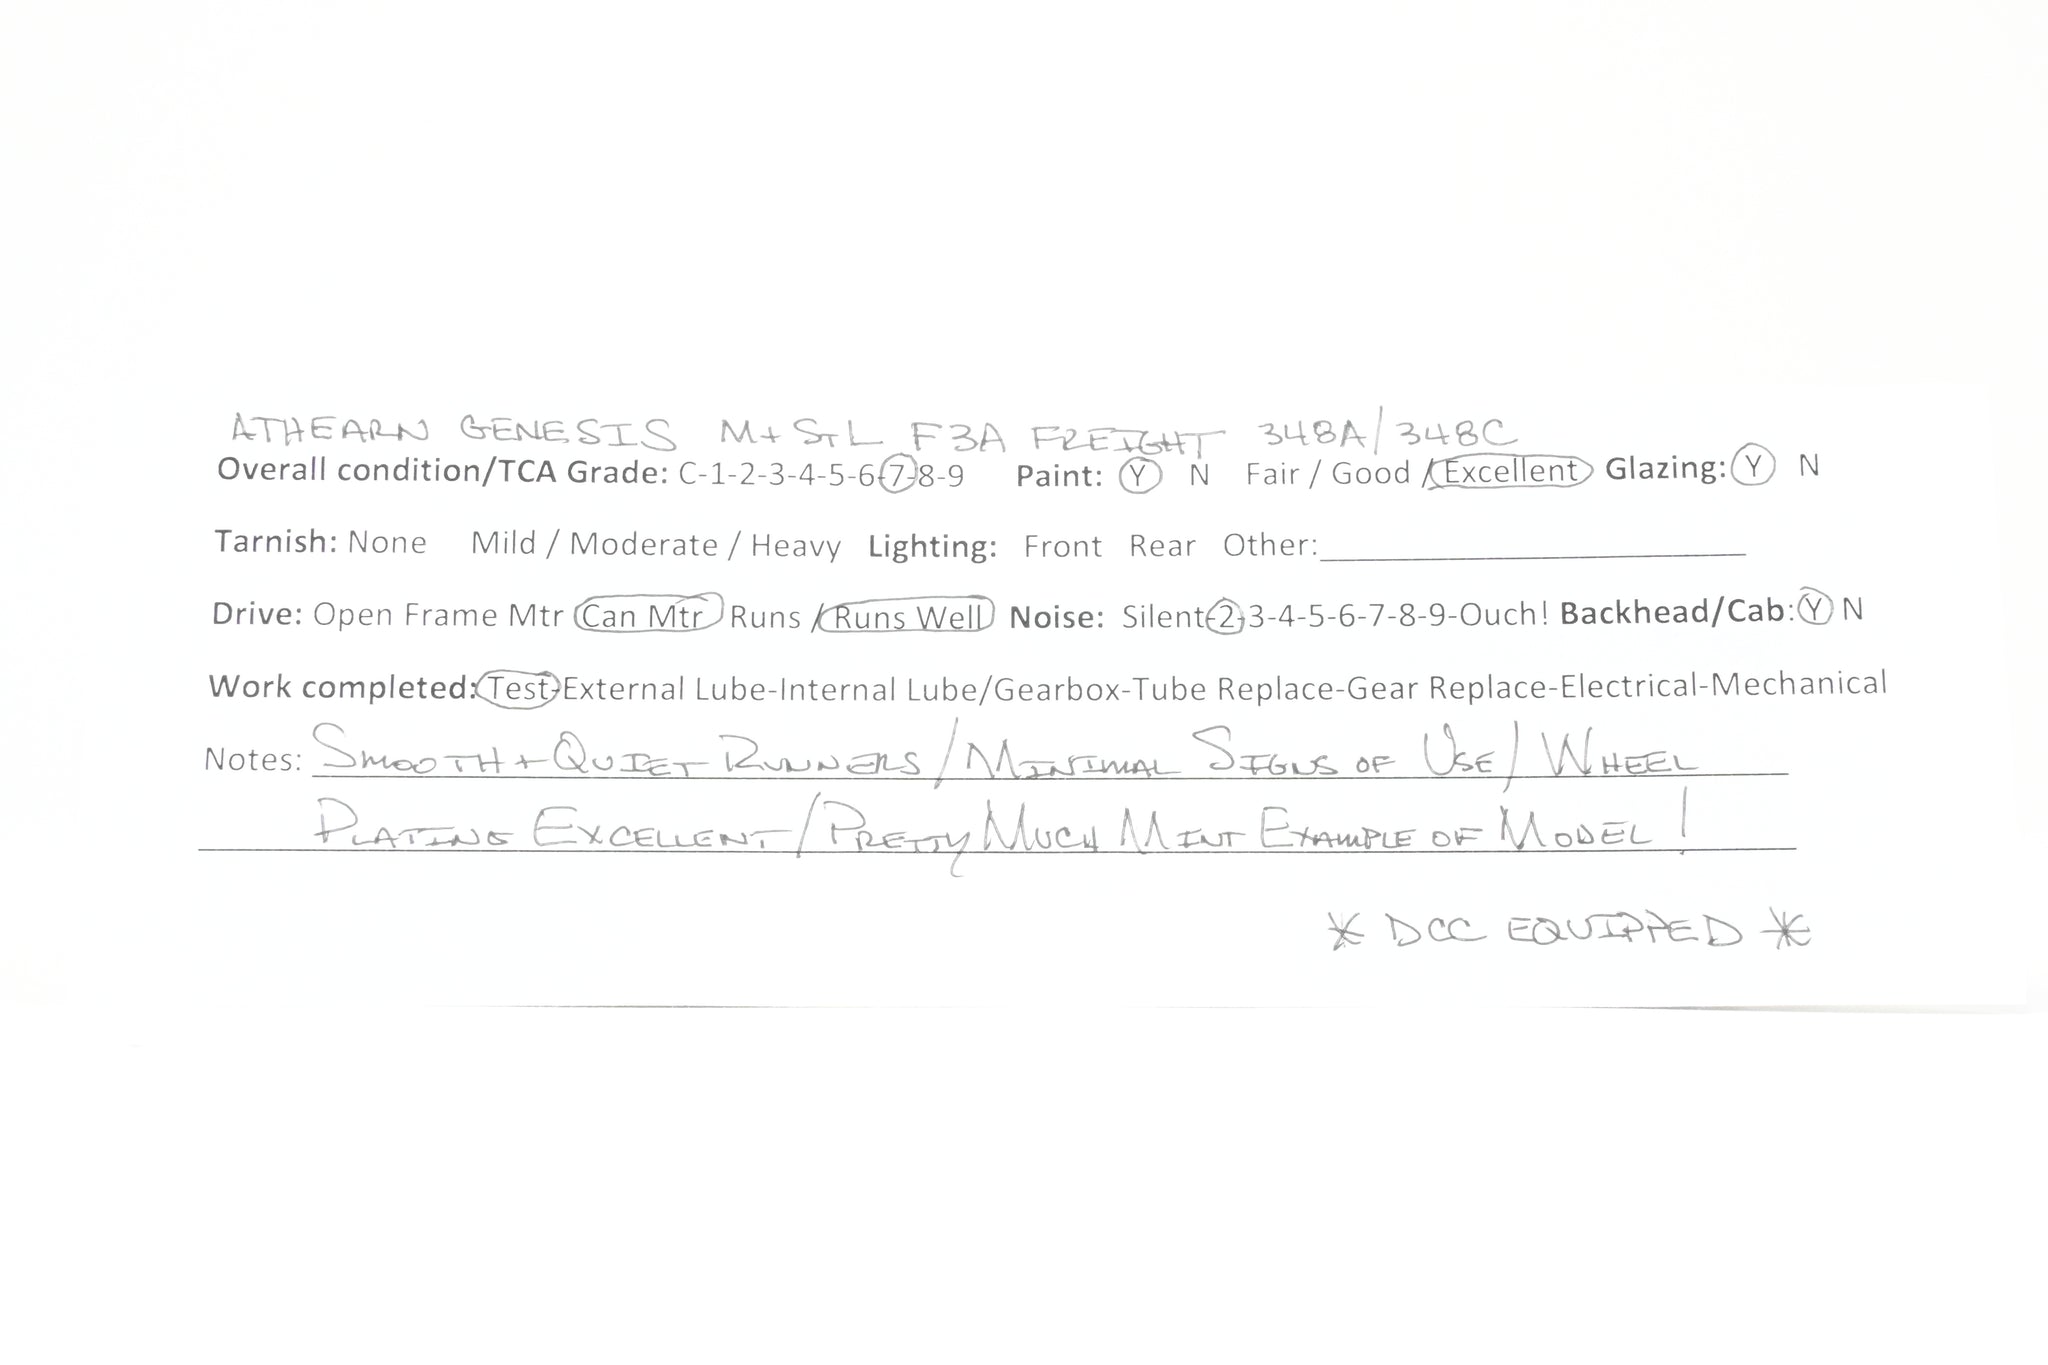 ATHEARN GENESIS M+StL F3A FREIGHT 348A/348C
Overall condition/TCA Grade: C-1-2-3-4-5-6-7-8-9 Paint: Y N Fair / Good / Excellent Glazing: Y N
Tarnish: None Mild / Moderate / Heavy Lighting: Front Rear Other:
Drive: Open Frame Mtr Can Mtr Runs / Runs Well Noise: Silent-2-3-4-5-6-7-8-9-Ouch! Backhead/Cab: Y N
Work completed: Test-External Lube-Internal Lube/Gearbox-Tube Replace-Gear Replace-Electrical-Mechanical
Notes: SMOOTH + QUIET RUNNERS / MINIMAL SIGNS OF USE / WHEEL
PLATING EXCELLENT / PRETTY MUCH MINT EXAMPLE OF MODEL!
* DCC EQUIPPED *